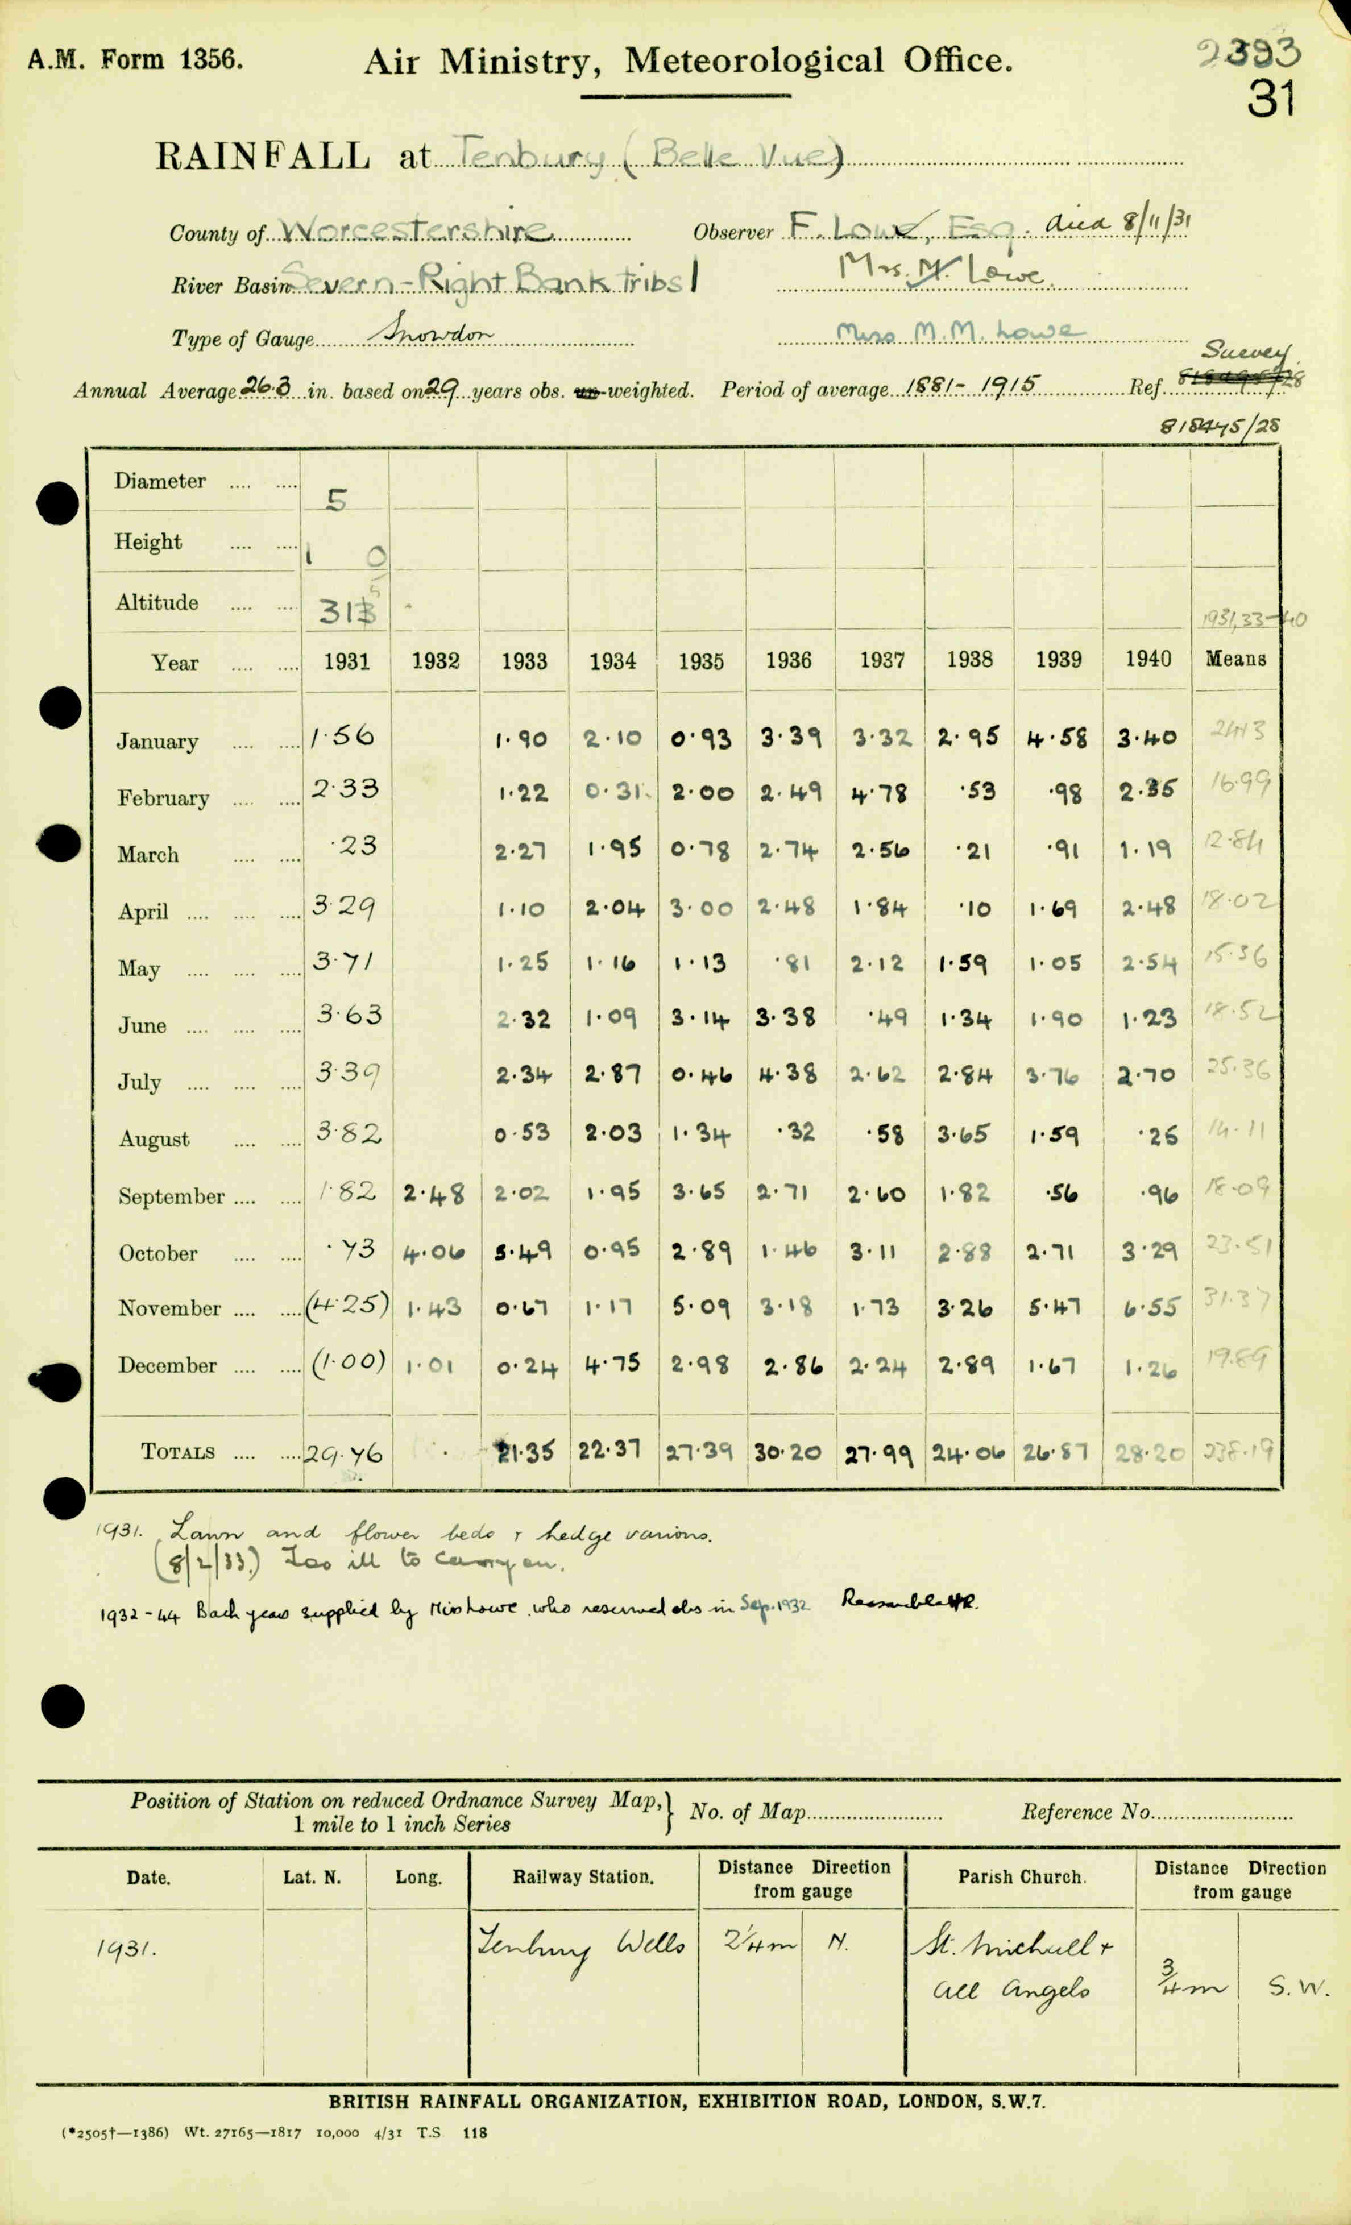 A.M. Form 1356.
Air Ministry, Meteorological Office.
2393
31
RAINFALL at Tenbury (Belle Vue)
County of Worcestershire Observer F. Lowe, Esq. died 8/11/31
River Basin Severn-Right Bank tribs Mrs. M. Lowe.
Type of Gauge Snowdon Miss M.M. Lowe
Survey
Annual Average 26.3 in. based on 29 years obs. un-weighted. Period of average 1881-1915 Ref.
818475/28
Diameter 5
Height 1 0
Altitude 313 5
1931,33-40
Year 1931 1932 1933 1934 1935 1936 1937 1938 1939 1940 Means
January 1.56 1.90 2.10 0.93 3.39 3.32 2.95 4.58 3.40 24.13
February 2.33 1.22 0.31 2.00 2.49 4.78 .53 .98 2.35 16.99
March .23 2.27 1.95 0.78 2.74 2.56 .21 .91 1.19 12.84
April 3.29 1.10 2.04 3.00 2.48 1.84 .10 1.69 2.48 18.02
May 3.71 1.25 1.16 1.13 .81 2.12 1.59 1.05 2.54 15.36
June 3.63 2.32 1.09 3.14 3.38 .49 1.34 1.90 1.23 18.52
July 3.39 2.34 2.87 0.46 4.38 2.62 2.84 3.76 2.70 25.36
August 3.82 0.53 2.03 1.34 .32 .58 3.65 1.59 .25 14.11
September 1.82 2.48 2.02 1.95 3.65 2.71 2.60 1.82 .56 .96 18.09
October .73 4.06 5.49 0.95 2.89 1.46 3.11 2.88 2.71 3.29 23.51
November (4.25) 1.43 0.67 1.17 5.09 3.18 1.73 3.26 5.47 6.55 31.37
December (1.00) 1.01 0.24 4.75 2.98 2.86 2.24 2.89 1.67 1.26 19.89
TOTALS 29.76 21.35 22.37 27.39 30.20 27.99 24.06 26.87 28.20 238.19
1931. Lawn and flower beds + hedge various.
(8/2/33.) Too ill to carry on.
1932-44 Back years supplied by Miss Lowe who resumed obs in Sep. 1932
Position of Station on reduced Ordnance Survey Map, } No. of Map Reference No.
1 mile to 1 inch Series
Date. Lat. N. Long. Railway Station. Distance Direction from gauge Parish Church. Distance Direction from gauge
1931. Tenbury Wells 2¼m N. St. Michael + All Angels ¾m S.W.
BRITISH RAINFALL ORGANIZATION, EXHIBITION ROAD, LONDON, S.W.7.
(*2505†—1386) Wt. 27165—1817 10,000 4/31 T.S. 118